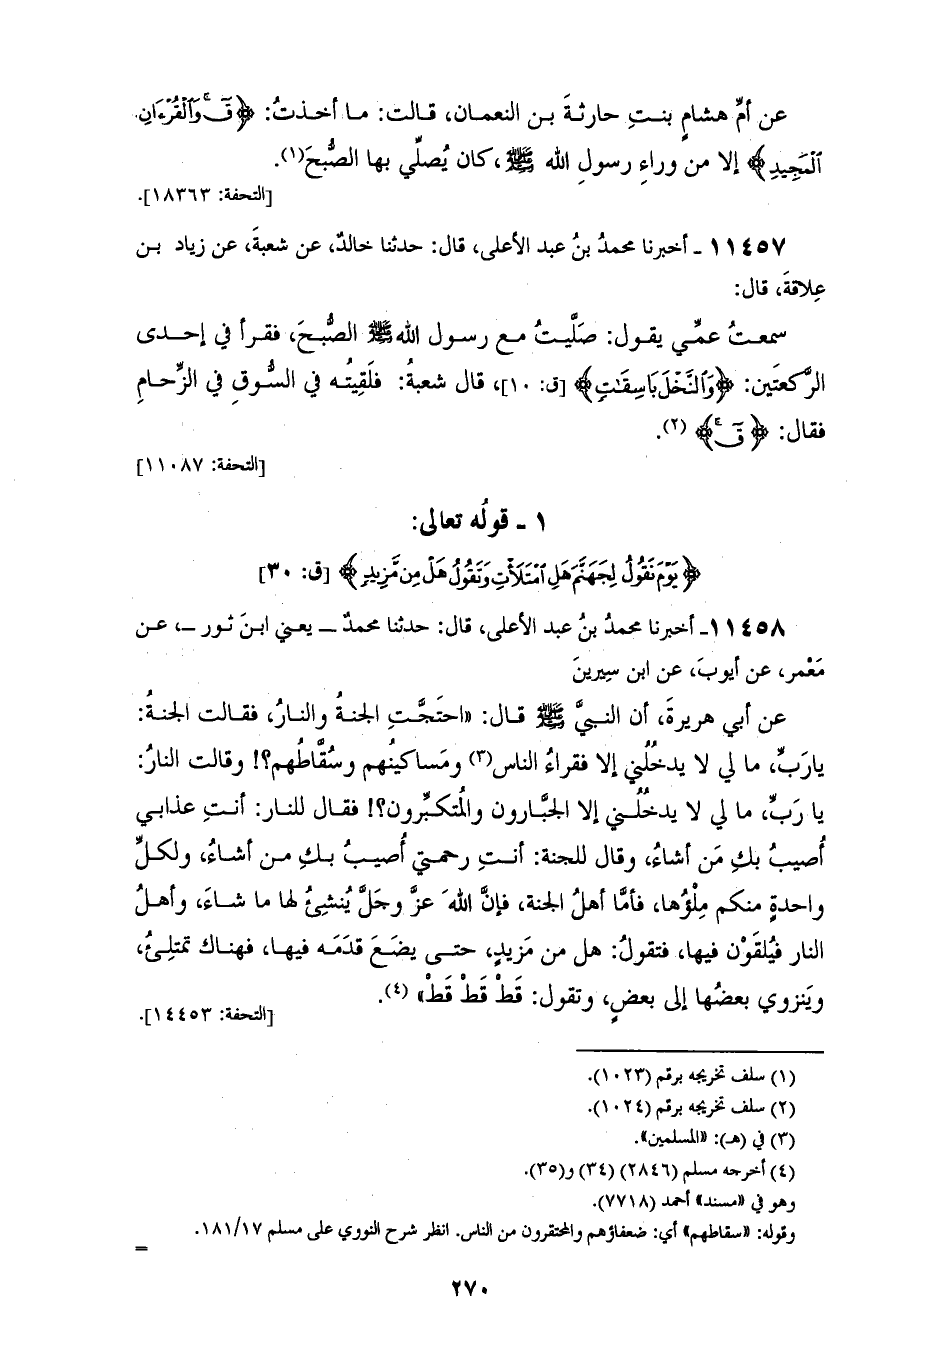 عن أمِّ هشامٍ بنتِ حارثةَ بن النعمان، قالت: ما أخذتُ: ﴿قٓۚ وَٱلْقُرْءَانِ
ٱلْمَجِيدِ﴾ إلا من وراءِ رسولِ الله ﷺ، كان يُصلِّي بها الصُّبحَ(١).
[التحفة: ١٨٣٦٣].
١١٤٥٧ ـ أخبرنا محمدُ بنُ عبد الأعلى، قال: حدثنا خالدٌ، عن شعبةَ، عن زياد بن
عِلاقةَ، قال:
سمعتُ عمِّي يقول: صَلَّيتُ مع رسول الله ﷺ الصُّبحَ، فقرأ في إحدى
الرَّكعتَين: ﴿وَٱلنَّخْلَ بَاسِقَٰتٍ﴾ [ق: ١٠]، قال شعبةُ: فلَقِيتُه في السُّوق في الزِّحامِ
فقال: ﴿قٓۚ﴾ (٢).
[التحفة: ١١٠٨٧]
١ ـ قولُه تعالى:
﴿يَوْمَ نَقُولُ لِجَهَنَّمَ هَلِ ٱمْتَلَأْتِ وَتَقُولُ هَلْ مِن مَّزِيدٍ﴾ [ق: ٣٠]
١١٤٥٨ـ أخبرنا محمدُ بنُ عبد الأعلى، قال: حدثنا محمدٌ ـ يعني ابنَ ثور ـ، عن
مَعْمر، عن أيوبَ، عن ابن سِيرينَ
عن أبي هريرةَ، أن النبيَّ ﷺ قال: «احتَجَّتِ الجنةُ والنارُ، فقالت الجنةُ:
ياربِّ، ما لي لا يدخلُني إلا فقراءُ الناس(٣) ومَساكينُهم وسُقَّاطُهم؟! وقالت النارُ:
يا رَبِّ، ما لي لا يدخلُني إلا الجبَّارون والمُتكبِّرون؟! فقال للنار: أنتِ عذابي
أُصيبُ بكِ مَن أشاءُ، وقال للجنة: أنتِ رحمتي أُصيبُ بكِ من أشاءُ، ولكلِّ
واحدةٍ منكم مِلْؤُها، فأمَّا أهلُ الجنة، فإنَّ اللهَ عزَّ وجَلَّ يُنشِئُ لها ما شاءَ، وأهلُ
النار فيُلقَوْن فيها، فتقولُ: هل من مَزيدٍ، حتى يضَعَ قدَمَه فيها، فهناك تمتلِئُ،
ويَنزوي بعضُها إلى بعضٍ، وتقول: قَطْ قَطْ قَطْ» (٤).
[التحفة: ١٤٤٥٣].
(١) سلف تخريجه برقم (١٠٢٣).
(٢) سلف تخريجه برقم (١٠٢٤).
(٣) في (هـ): «المسلمين».
(٤) أخرجه مسلم (٢٨٤٦) (٣٤) و(٣٥).
وهو في «مسند» أحمد (٧٧١٨).
وقوله: «سقاطهم» أي: ضعفاؤهم والمحتقرون من الناس. انظر شرح النووي على مسلم ١٨١/١٧.
=
٢٧٠